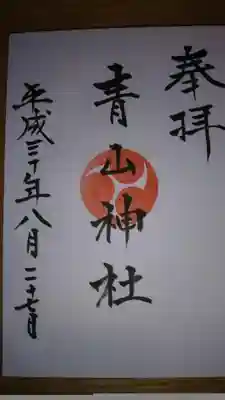 奉拝
青山神社
平成三十年八月二十七日